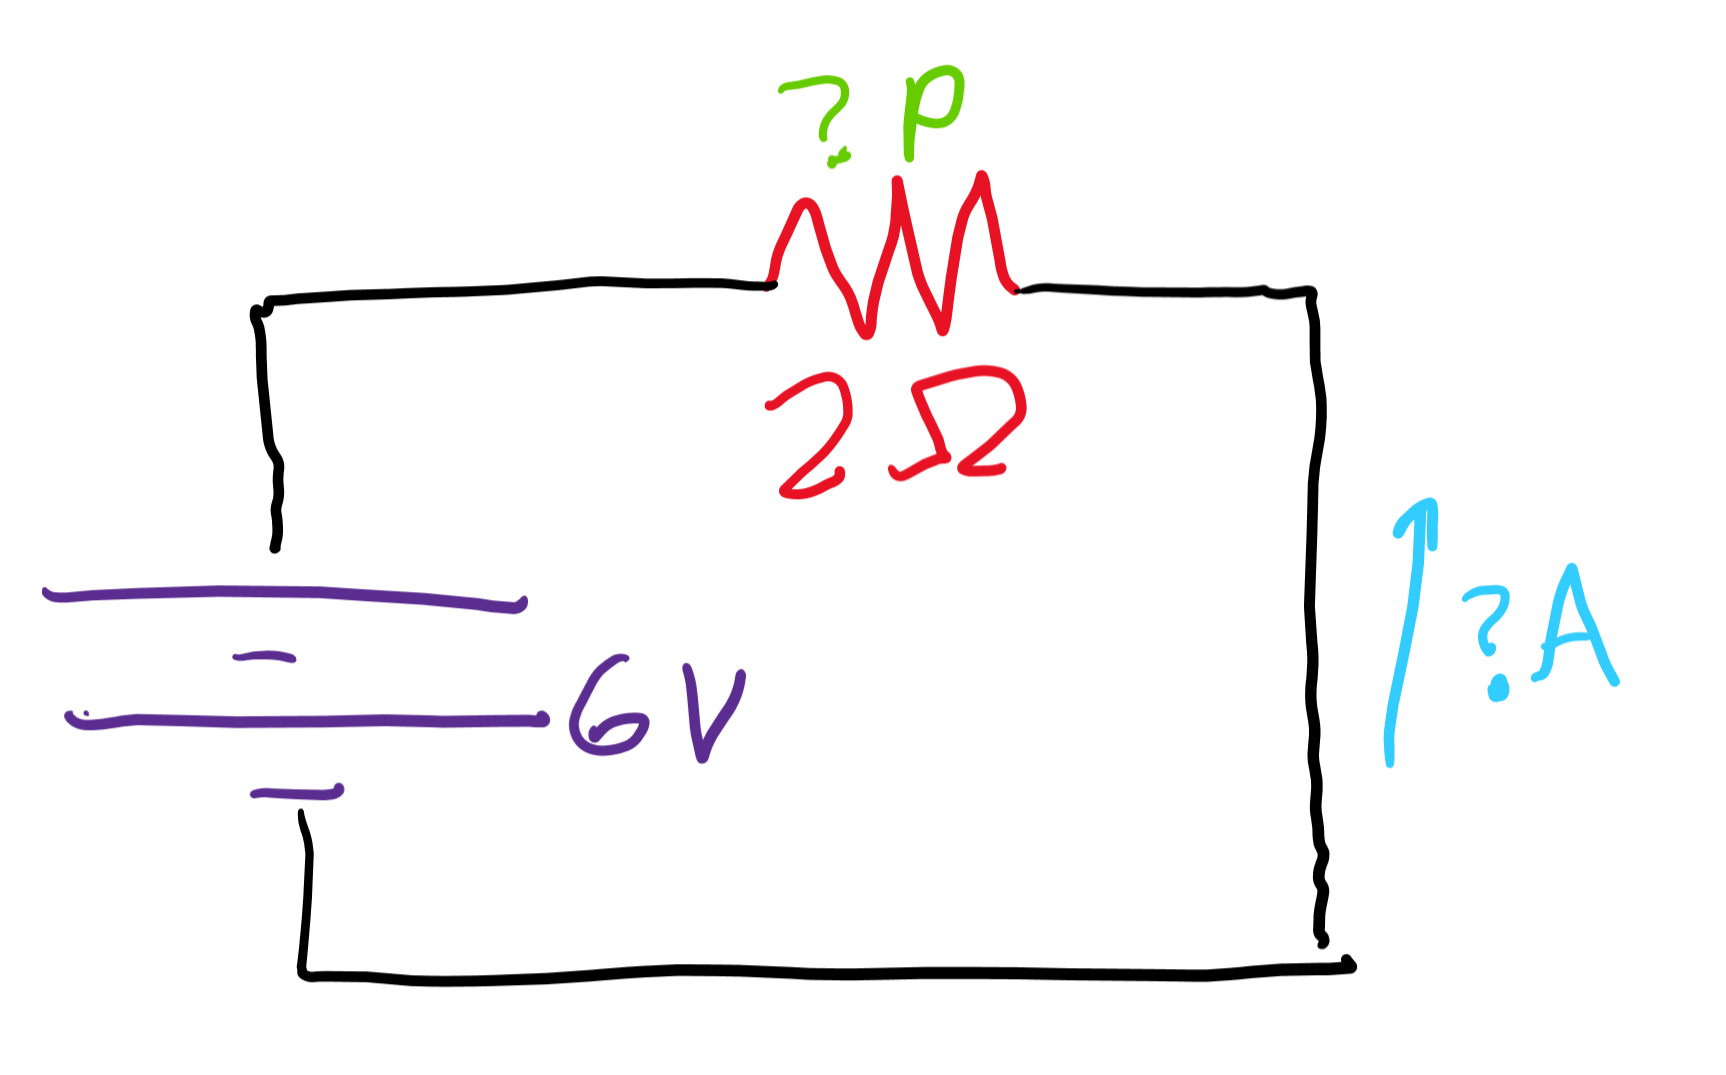 ? P
2 Ω
6 V
? A